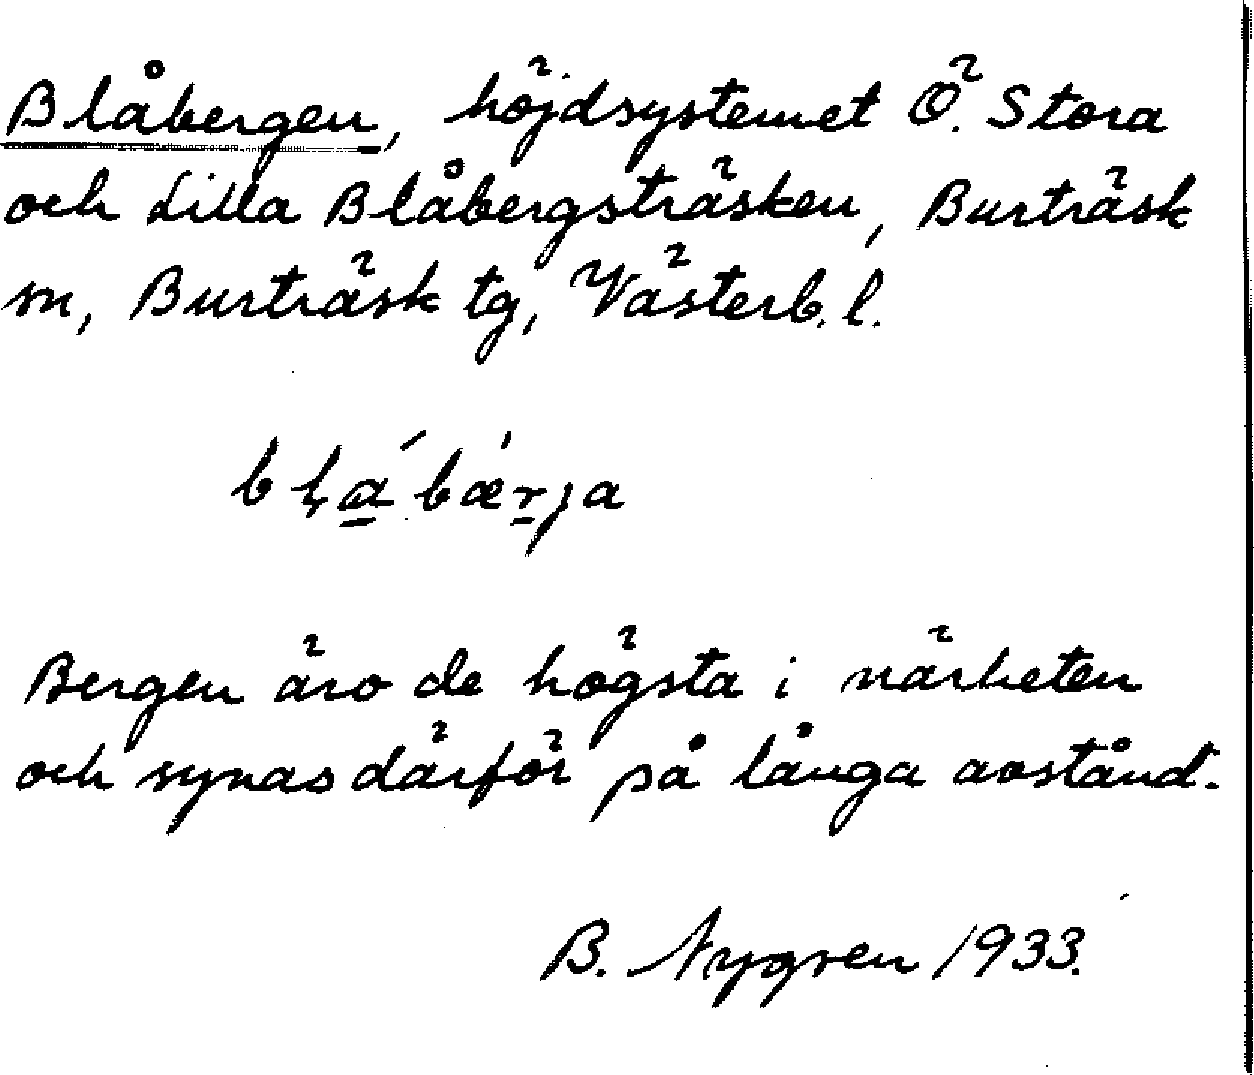 Blåbergen, höjdsystemet Ö. Stora
och Lilla Blåbergsträsken, Burträsk
sn, Burträsk tg, Västerb. l.
bḷa̲´bæ̀r̲ja
Bergen äro de högsta i närheten
och synas därför på långa avstånd.
B. Nygren 1933.